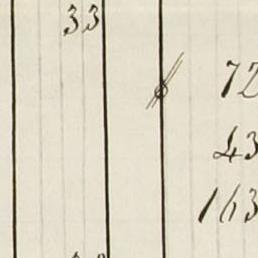 33
72
43
163